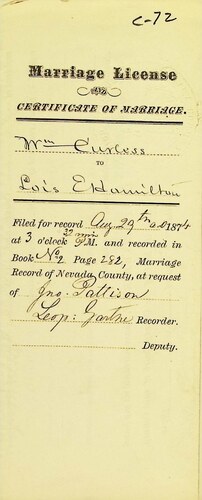 C-72
Marriage License
AND
CERTIFICATE OF MARRIAGE.
Wm Curless
TO
Lois E Hamilton
Filed for record Aug 29th A.D 1874
at 3 o'clock 2 min P.M. and recorded in
Book No 2 Page 282, Marriage
Record of Nevada County, at request
of Jno. Pattison
Leop: Garthe Recorder.
Deputy.